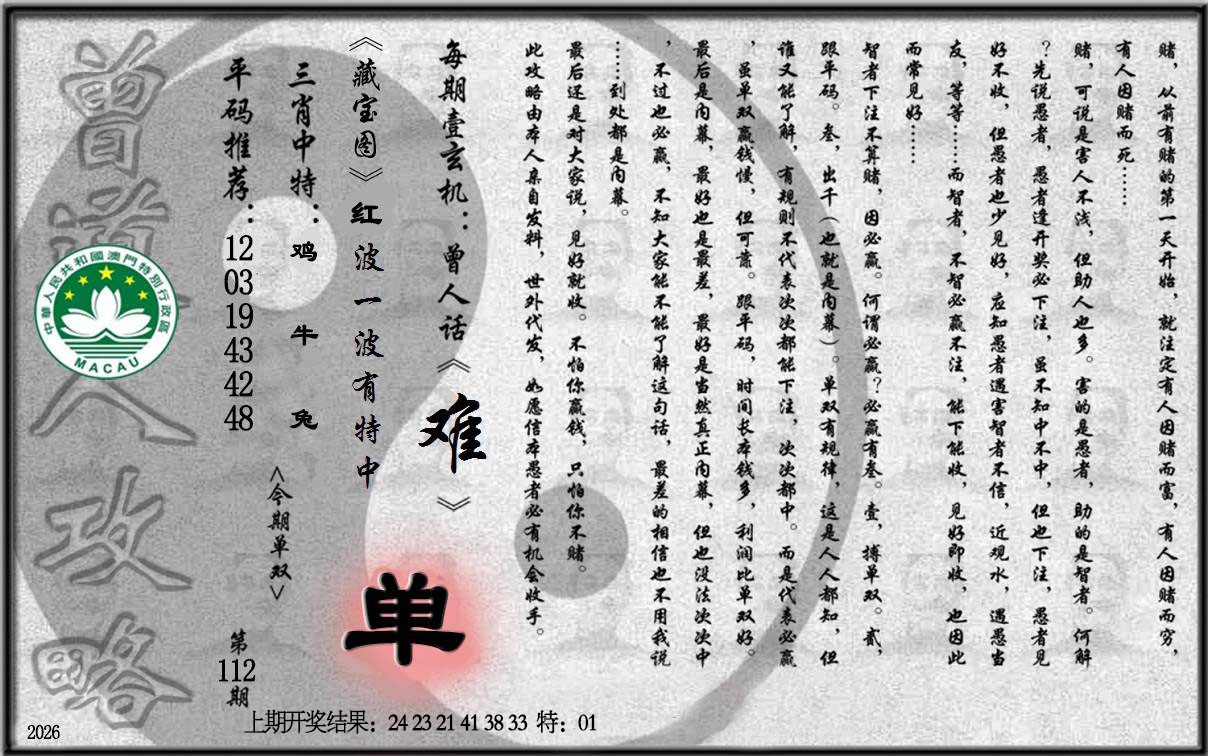 赌，从前有赌的第一天开始，就注定有人因赌而富，有人因赌而穷，
有人因赌而死……
赌，可说是害人不浅，但助人也多。害的是愚者，助的是智者。何解
？先说愚者，愚者逢开奖必下注，虽不知中不中，但也下注，愚者见
好不收，但愚者也少见好，应知愚者遇害智者不信，近观水，遇愚当
友，等等……而智者，不智必赢不注，能下能收，见好即收，也因此
而常见好……
智者下注不算赌，因必赢。何谓必赢？必赢有叁。壹，搏单双。贰，
跟平码。叁，出千（也就是内幕）。单双有规律，这是人人都知，但
谁又能了解，有规则不代表次次都能下注，次次都中。而是代表必赢
，虽单双赢钱慢，但可靠。跟平码，时间长本钱多，利润比单双好。
最后是内幕，最好也是最差，最好是当然真正内幕，但也没法次次中
，不过也必赢，不知大家能不能了解这句话，最差的相信也不用我说
……到处都是内幕。
最后还是对大家说，见好就收。不怕你赢钱，只怕你不赌。
此攻略由本人亲自发料，世外代发，如愿信本愚者必有机会收手。
每期壹玄机：曾人话《难》
《藏宝图》红波一波有特中
单
三肖中特：鸡 牛 兔
<今期单双>
平码推荐：12 03 19 43 42 48
第112期
曾道人攻略
中華人民共和國澳門特別行政區
MACAU
上期开奖结果：24 23 21 41 38 33 特：01
2026